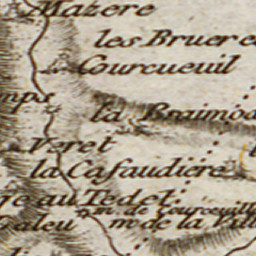 Mazere
les Bruere
Courcueuil
mps
la Braimod
Veret
la Cafaudiere
re au Tedet
m. de Courceuil
Caleu
m. de la